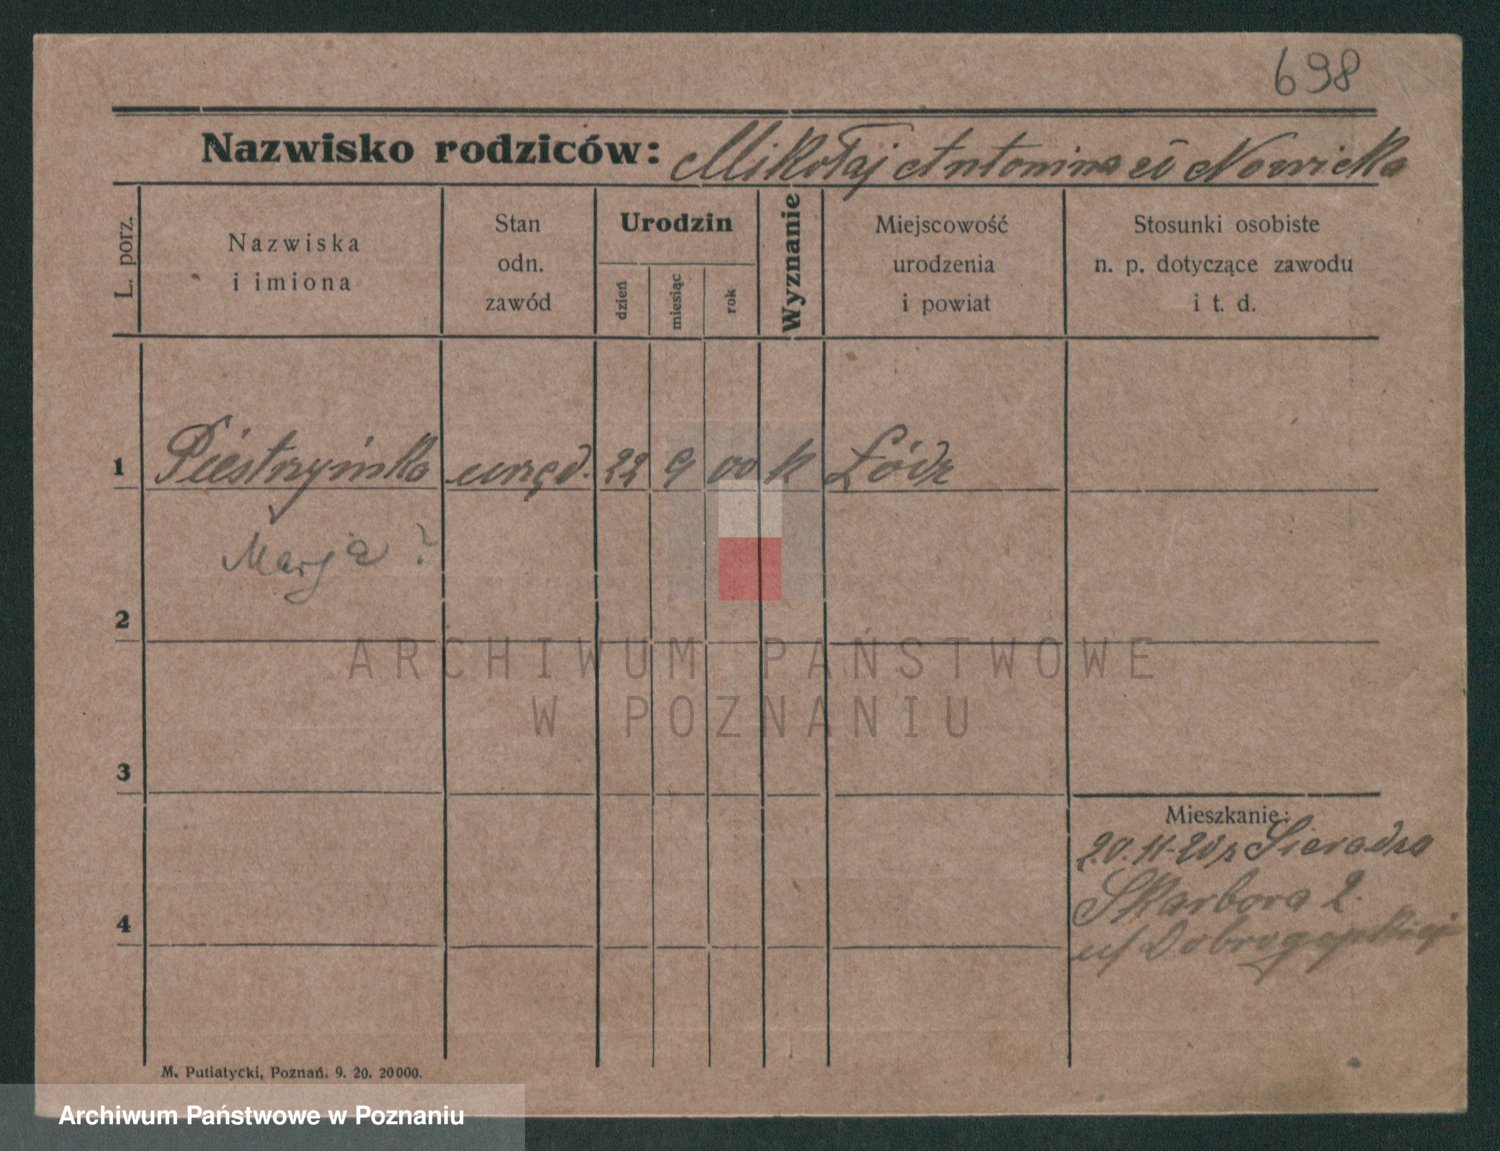 698
Nazwisko rodziców: Mikołaj Antonina Nowicka
L. porz.
Nazwiska
i imiona
Stan
odn.
zawód
Urodzin
dzień
miesiąc
rok
Wyznanie
Miejscowość
urodzenia
i powiat
Stosunki osobiste
n. p. dotyczące zawodu
i t. d.
1 Piestrzyńska urzęd. 22 9 00 k Łódz
Marja ?
2
ARCHIWUM PAŃSTWOWE
W POZNANIU
3
Mieszkanie:
20. 11. Sieradza
4 Skarbora 2.
M. Putiatycki, Poznań. 9. 20. 20000.
Archiwum Państwowe w Poznaniu